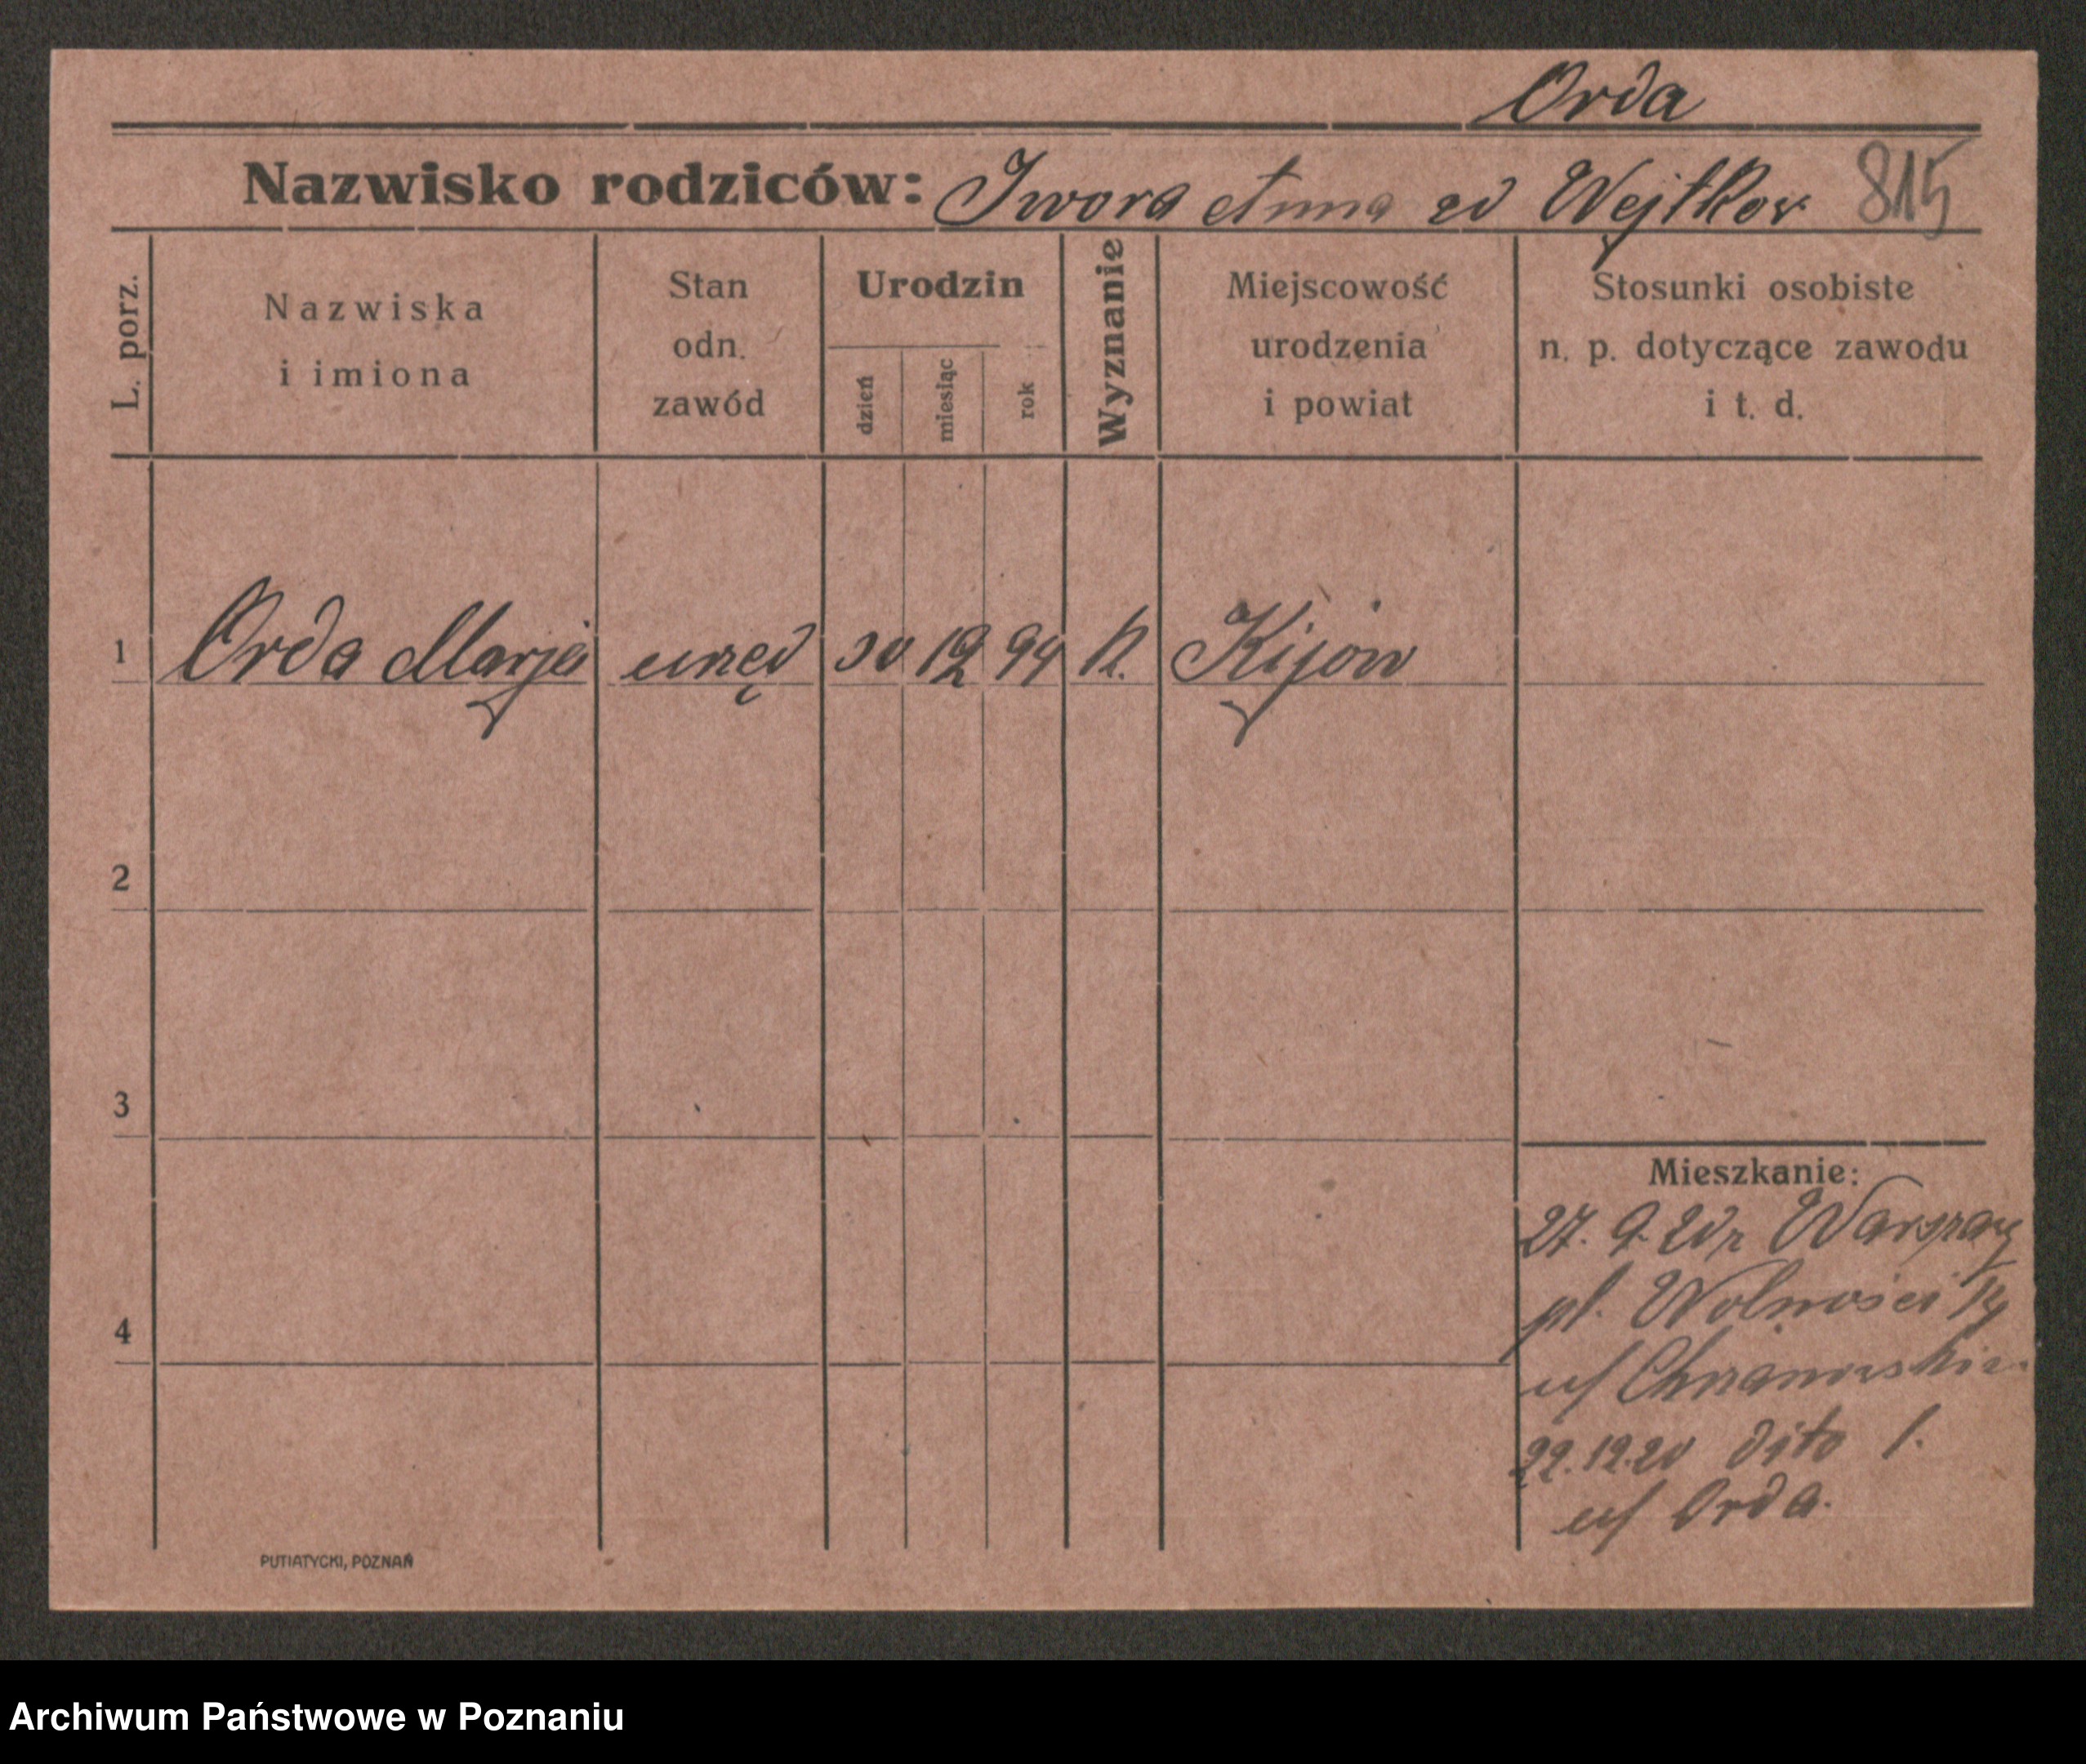 Orda
Nazwisko rodziców: Iwora Anna zd Wejtkow 815
L. porz.
Nazwiska
i imiona
Stan
odn.
zawód
Urodzin
dzień
miesiąc
rok
Wyznanie
Miejscowość
urodzenia
i powiat
Stosunki osobiste
n. p. dotyczące zawodu
i t. d.
1 Orda Marja urzęd 30 12 94 k. Kijów
2
3
4
Mieszkanie:
27. 9. 20 z Warszawy
pl. Wolności 14
u/
22.12.20 dito 1.
u/ Orda.
PUTIATYCKI, POZNAŃ
Archiwum Państwowe w Poznaniu